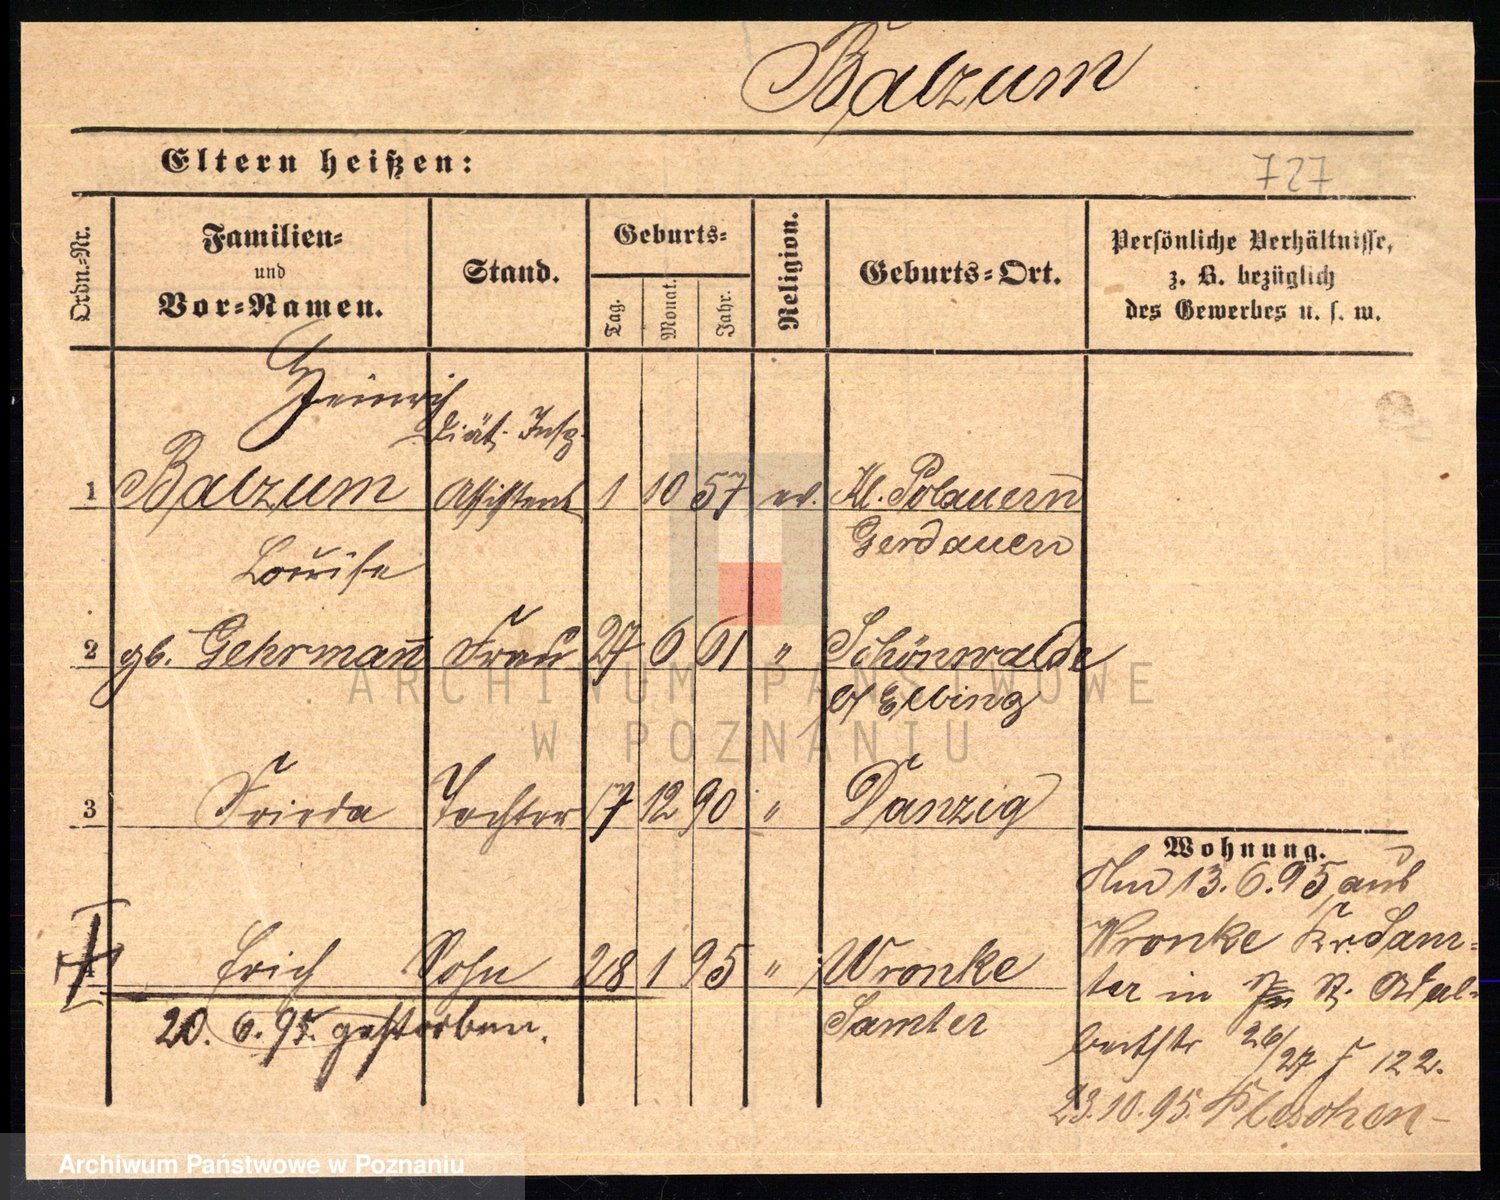 Balzum
Eltern heißen:
727
Ordn.-Nr.
Familien-
und
Vor-Namen.
Stand.
Geburts-
Tag.
Monat.
Jahr.
Religion.
Geburts-Ort.
Persönliche Verhältnisse,
z. B. bezüglich
des Gewerbes u. s. w.
Heinrich
Diät. Insp.
1 Balzum Assistent 1 10 57 ev. Kl. Polauern
Gerdauen
Louise
2 gb. Gehrmann Frau 27 6 61 " Schönwalde
b/ Elbing
3 Frieda Tochter 17 12 90 " Danzig
Wohnung.
Am 13.6.95 aus
Wronke Kr. Sam-
ter in St. Adal-
bertstr 26/27 J 122.
23.10.95. Pleschen
4 Erich Sohn 28 1 95 " Wronke
Samter
20. 6. 95. gestorben.
ARCHIWUM PAŃSTWOWE
W POZNANIU
Archiwum Państwowe w Poznaniu